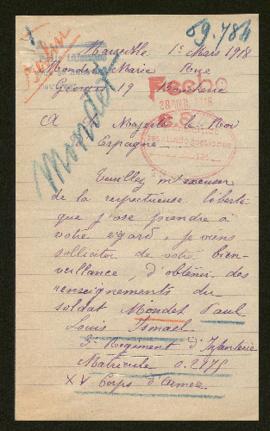 59.784
Marseille 1er Mars 1918
Mondet Marie Rue
Georges 19
Fecho
28 MAR. 1918
A sa Majesté le Roi
d'Espagne
Mondet
Veuillez m'excuser
de la respectueuse liberté
que j'ose prendre à
votre égard, je viens
solliciter de votre bien-
veillance, d'obtenir des
renseignements du
soldat Mondet Paul
Louis Ismael
Regiment d'Infanterie
Matricule
XV Corps d'Armée